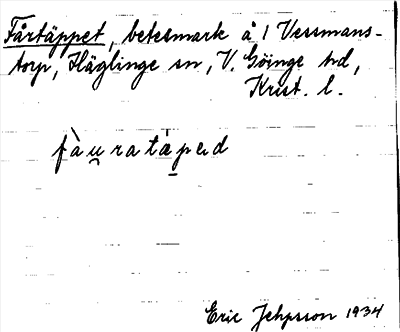 Fårtäppet, betesmark å 1 Vessmans-
torp, Häglinge sn, V. Göinge hd,
Krist. l.
fàu̯ratä̀ped
Eric Jepsson 1934